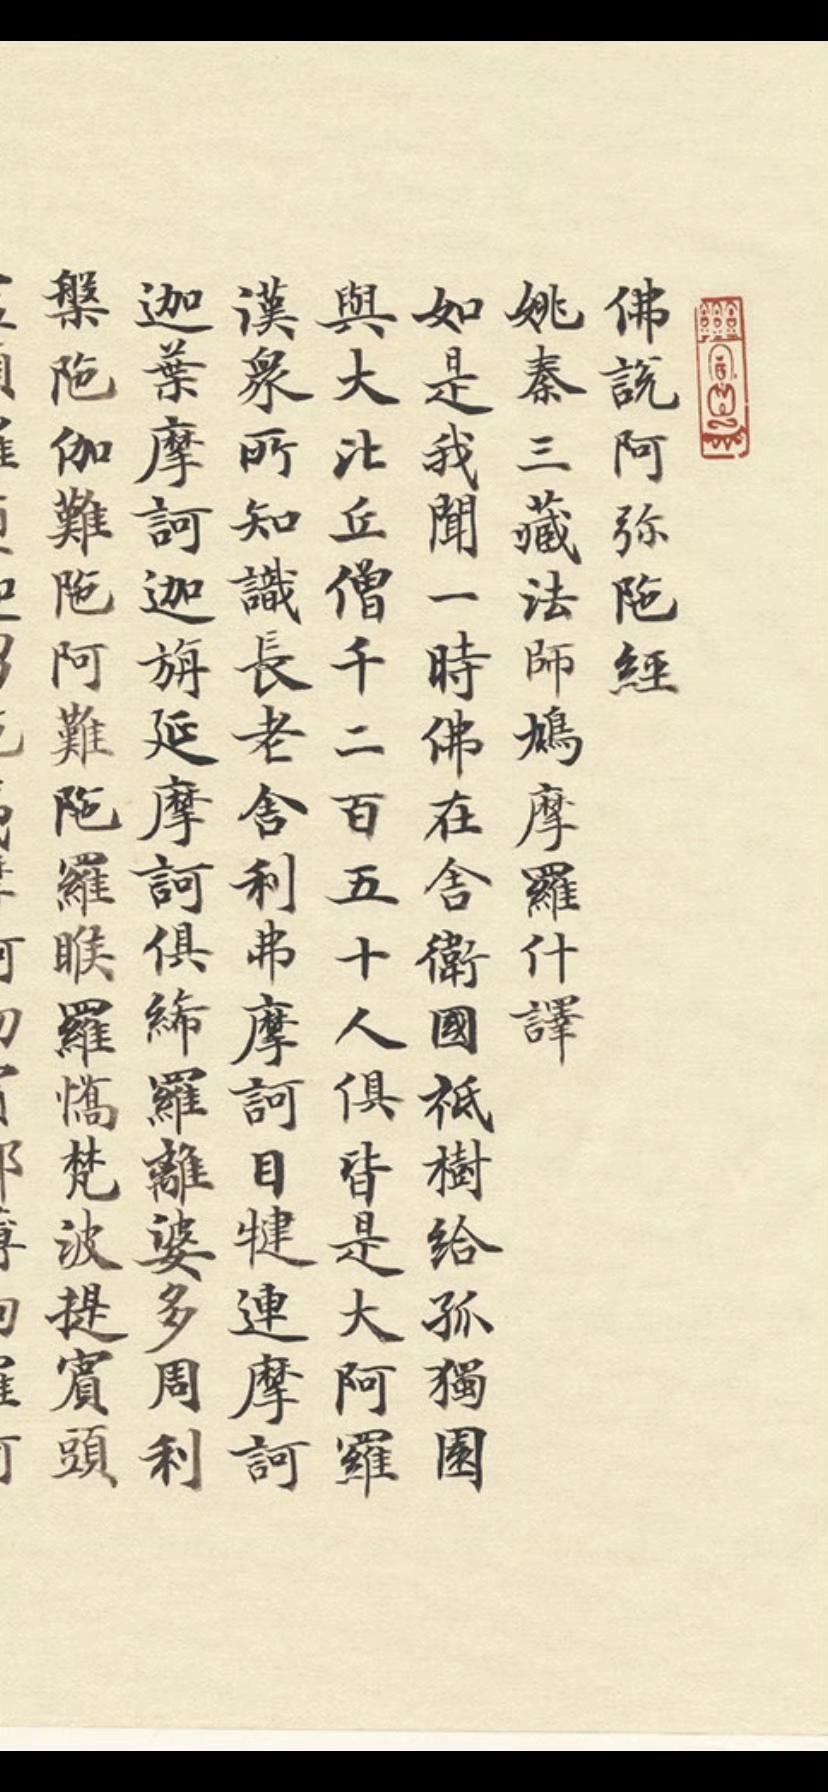 佛說阿弥陁經
姚秦三藏法師鳩摩羅什譯
如是我聞一時佛在舎衛國祇樹給孤獨園
與大比丘僧千二百五十人俱皆是大阿羅
漢衆所知識長老舎利弗摩訶目犍連摩訶
迦葉摩訶迦旃延摩訶俱絺羅離婆多周利
槃陁伽難陁阿難陁羅睺羅憍梵波提賓頭